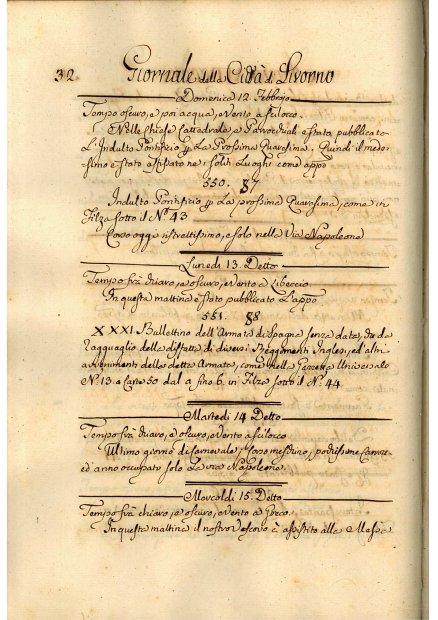 32 Giornale della Città di Livorno
Domenica 12. Febbrajo
Tempo oscuro, e poi acqua, e vento a scilocco.
Nelle Chiese Cattedrale e Parrocchiali è stato pubblicato
L'Indulto Pontificio p la Prossima Quaresima. Quindi il mede-
simo è stato affisso ne' soliti Luoghi come app.o
550. 87
Indulto Pontificio p la prossima Quaresima, come in
Filza sotto il N.o 43
Corso oggi ristrettissimo, e solo nella Via Napoleone
Lunedì 13. Detto
Tempo frà chiaro, e oscuro, e vento a Libeccio
In questa mattina è stato pubblicato L'app.o
551. 88
XXXI Bullettino dell'Armata di Spagna senza data, che dà
ragguaglio della disfatta di diversi Reggimenti Inglesi, ed altri
avvenimenti della detta Armata, come nella Gazzetta Universale
N.o 13. a Carte 50 dal a fino 6. in Filza sotto il N.o 44.
Martedì 14 Detto
Tempo frà chiaro, e oscuro, e vento a scilocco
Ultimo giorno di Carnevale, Corso meschino, pochissime Carrozze
ed anno occupato solo La via Napoleone.
Mercoldì 15. Detto
Tempo frà chiaro, e oscuro, e vento a Greco.
In questa mattina il nostro Vescovo è assistito alla Messa